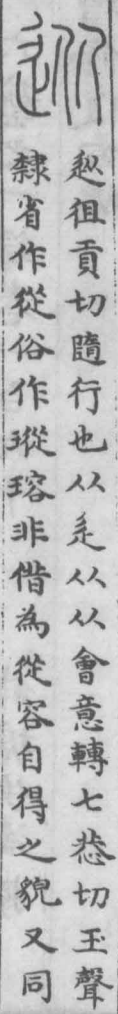 徂貢切隨行也从辵从从會意轉七恭切玉聲
隸省作從俗作瑽瑢非借為從容自得之貌又同